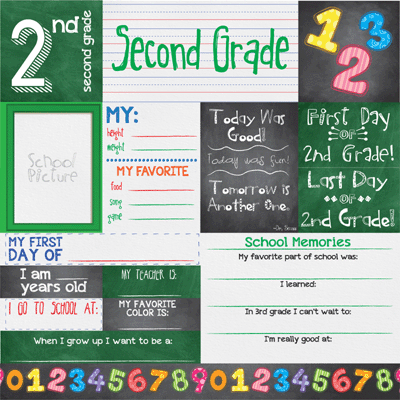 2nd
second grade
Second Grade
1 2 3
School
Picture
MY:
height
weight
MY FAVORITE
food
song
game
Today Was
Good!
Today was fun!
Tomorrow is
Another One.
First Day
or
2nd Grade!
Last Day
or
2nd Grade!
MY FIRST
DAY OF
I am
years old
MY TEACHER IS:
I GO TO SCHOOL AT:
MY FAVORITE
COLOR IS:
When I grow up I want to be a:
School Memories
My favorite part of school was:
I learned:
In 3rd grade I can't wait to:
I'm really good at:
01234567890123456789